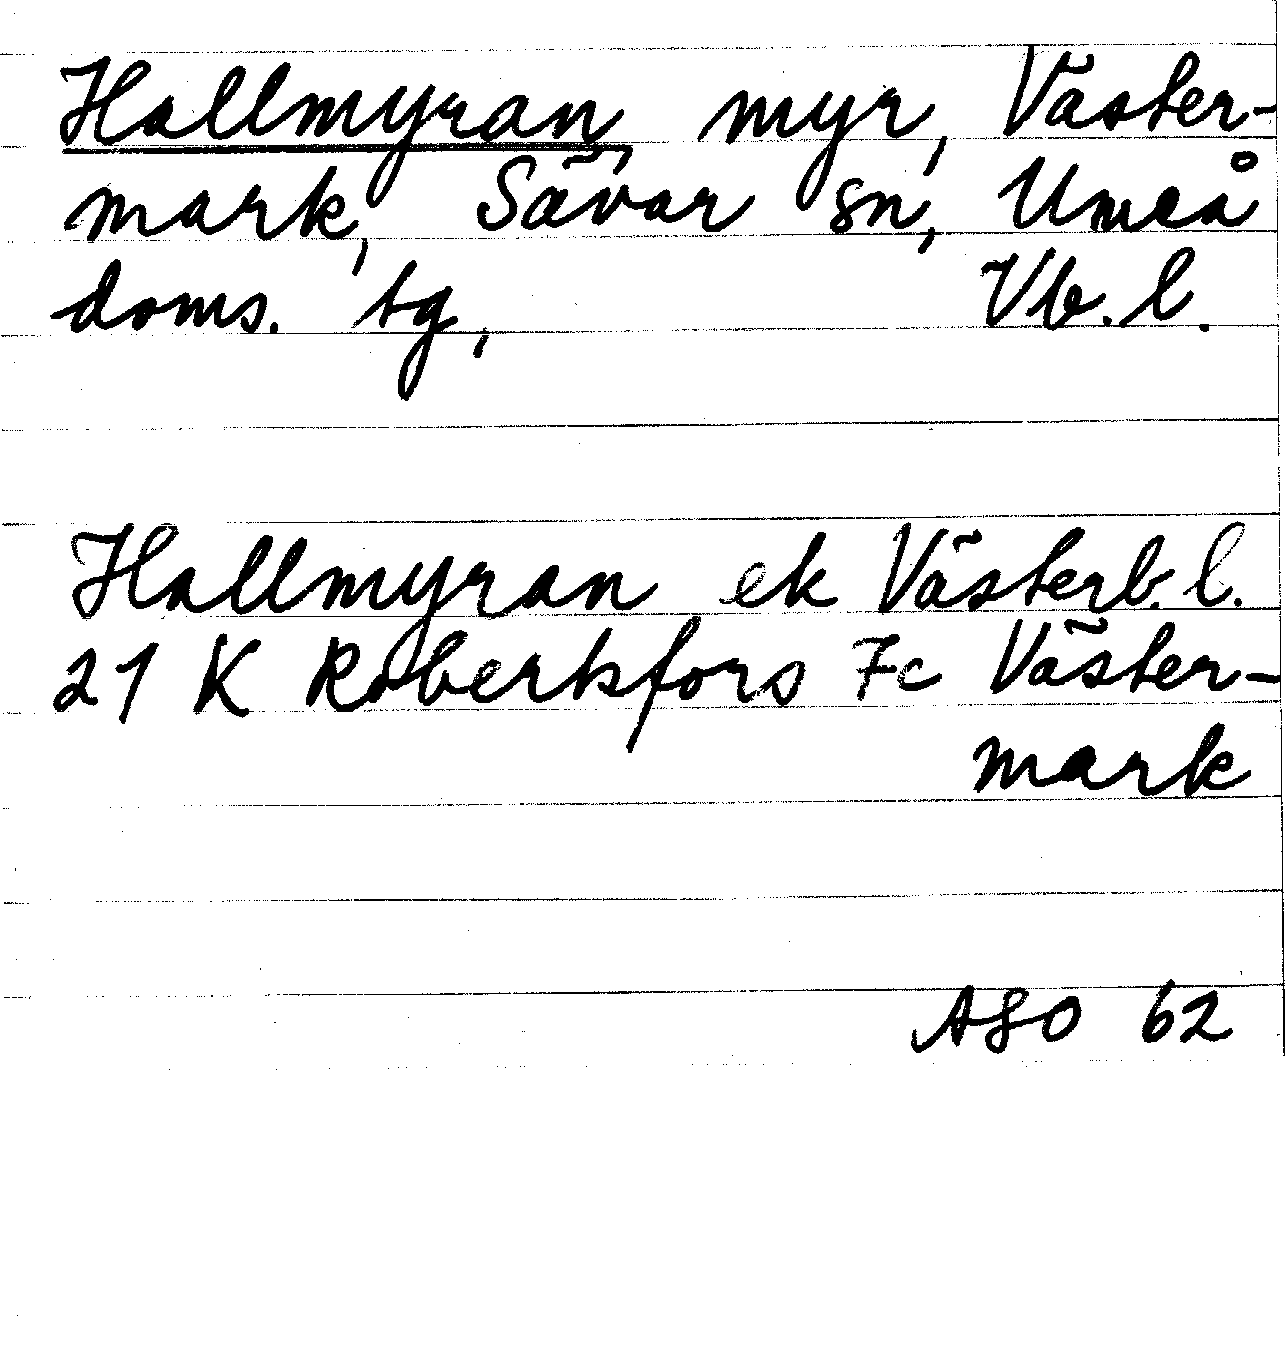 Hallmyran, myr, Väster-
mark, Sävar sn, Umeå
doms. tg, Vb. l.
Hallmyran ek Västerb. l.
21 K Robertsfors 7c Väster-
mark
ASO 62